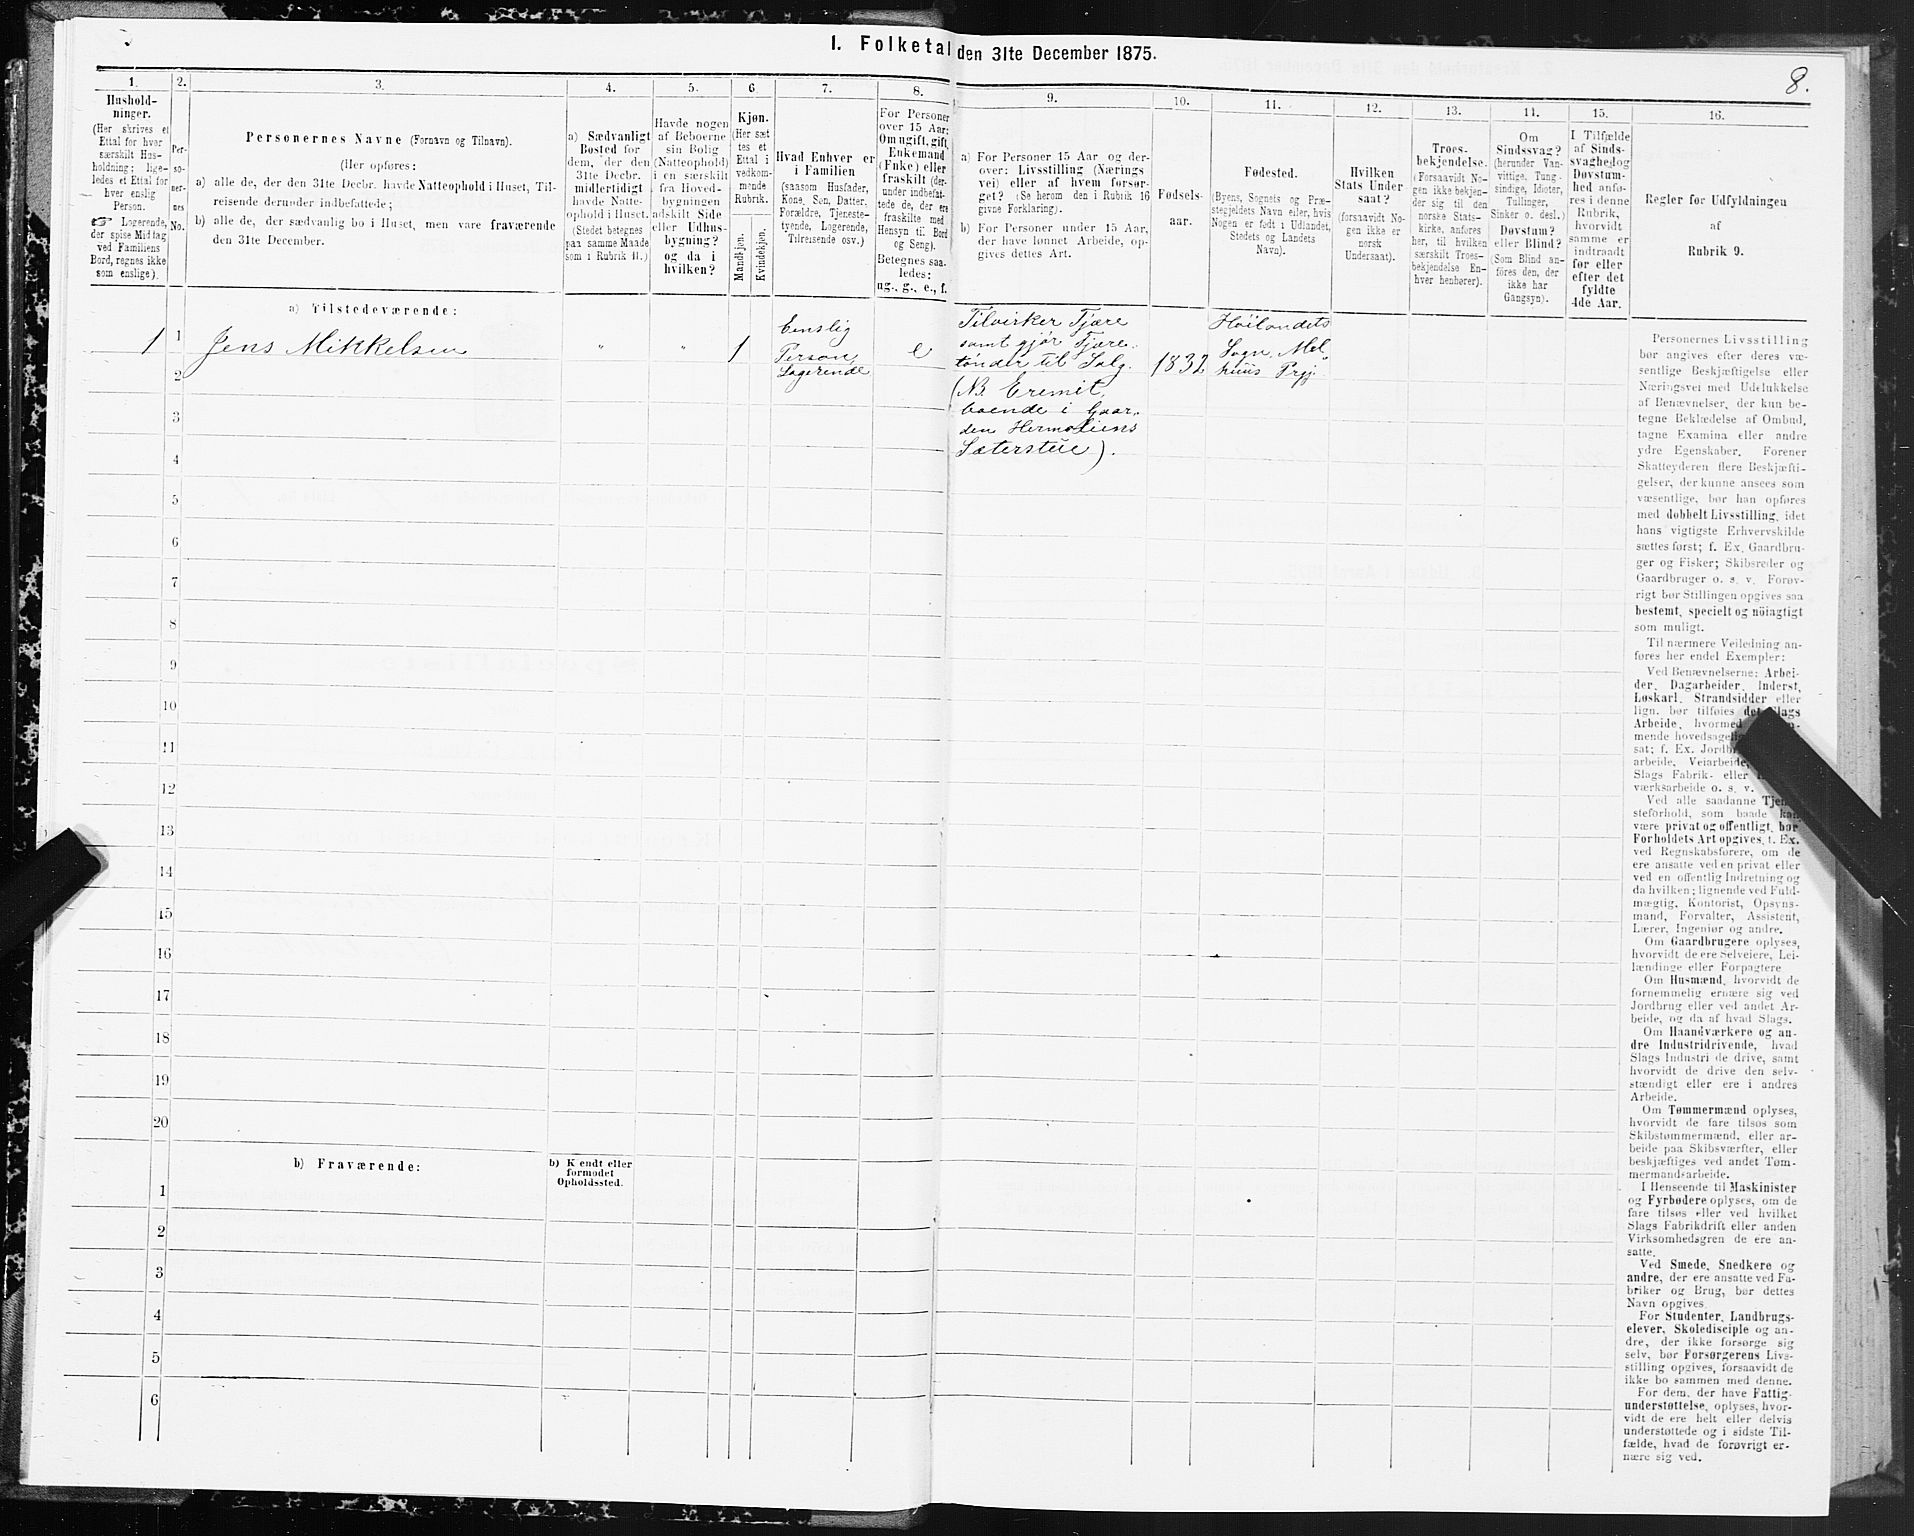 1. Folketal den 31te December 1875.
8.
1.
Hushold-
ninger.
(Her skrives et
Ettal for hver
særskilt Hus-
holdning; lige-
ledes et Ettal for
hver enslig
Person.
☞ Logerende,
der spise Middag
ved Familiens
Bord, regnes ikke
som enslige).
2.
Per-
so-
ner-
nes
No.
3.
Personernes Navne (Fornavn og Tilnavn).
(Her opføres:
a) alle de, der den 31te Decbr. havde Natteophold i Huset, Til-
reisende derunder indbefattede;
b) alle de, der sædvanlig bo i Huset, men vare fraværende
den 31te December.
4.
a) Sædvanligt
Bosted for
dem, der den
31te Decbr.
midlertidigt
havde Natte-
ophold i Huset.
(Stedet betegnes
paa samme Maade
som i Rubrik 11.)
5.
Havde nogen
af Beboerne
sin Bolig
(Natteophold)
i en særskilt
fra Hoved-
bygningen
adskilt Side
eller Udhus-
bygning?
og da i
hvilken?
6.
Kjøn.
(Her sæt
tes et
Ettal i
vedkom-
mende
Rubrik.
Mandkjøn.
Kvindekjøn.
7.
Hvad Enhver er
i Familien
(saasom Husfader,
Kone, Søn, Datter,
Forældre, Tjeneste-
tyende, Logerende,
Tilreisende osv.)
8.
For Personer
over 15 Aar:
Om ugift, gift,
Enkemand
(Enke) eller
fraskilt (der-
under indbefat-
tede de, der ere
fraskilte med
Hensyn til Bord
og Seng).
Betegnes saa-
ledes:
ug., g., e., f.
9.
a) For Personer 15 Aar og der-
over: Livsstilling (Nærings
vei) eller af hvem forsør-
get? (Se herom den i Rubrik 16
givne Forklaring).
b) For Personer under 15 Aar,
der have lønnet Arbeide, op-
gives dettes Art.
10.
Fødsels-
aar.
11.
Fødested.
(Byens, Sognets og Præ-
stegjeldets Navn eller, hvis
Nogen er født i Udlandet,
Stedets og Landets
Navn).
12.
Hvilken
Stats Under
saat?
(forsaavidt No-
gen ikke er
norsk
Undersaat).
13.
Troes-
bekjendelse.
(Forsaavidt No-
gen ikke bekjen-
der sig til den
norske Stats-
kirke, anføres
her, til hvilken
særskilt Troes-
bekjendelse En-
hver henhører).
14.
Om
Sindssvag?
(herunder Van-
vittige, Tung-
sindige, Idioter,
Tullinger,
Sinker o. desl.)
Døvstum?
eller Blind?
(Som Blind an-
føres den, der
ikke har
Gangsyn).
15.
I Tilfælde
af Sinds-
svaghed og
Døvstum-
hed anfø-
res i denne
Rubrik,
hvorvidt
samme er
indtraadt
før eller
efter det
fyldte
4de Aar.
16.
Regler for Udfyldningen
af
Rubrik 9.
a) Tilstedeværende:
1 1 Jens Mikkelsen " " 1
Enslig
Person,
Logerende
e
Tilvirker Tjære
samt gjør Tjære-
tønder til Salg.
(NB. Eremit,
boende i Gaar-
den Hermoliens
Sæterstue).
1832
Høilandets
Sogn, Mel
huus Prgj.
2
3
4
5
6
7
8
9
10
11
12
13
14
15
16
17
18
19
20
b) Fraværende:
b) Kjendt eller
formodet
Opholdssted.
1
2
3
4
5
6
Personernes Livsstilling
bør angives efter deres væ-
sentlige Beskjæftigelse eller
Næringsvei med Udelukkelse
af Benævnelser, der kun be-
tegne Beklædelse af Ombud,
tagne Examina eller andre
ydre Egenskaber. Forener
Skatteyderen flere Beskjæfti-
gelser, der kunne ansees som
væsentlige, bør han opføres
med dobbelt Livsstilling, idet
hans vigtigste Erhvervskilde
sættes først; f. Ex. Gaardbru-
ger og Fisker; Skibsreder og
Gaardbruger o. s. v. Forøv-
rigt bør Stillingen opgives saa
bestemt, specielt og nöiagtigt
som muligt.
Til nærmere Veiledning an-
føres her endel Exempler:
Ved Benævnelserne: Arbei-
der, Dagarbeider, Inderst,
Løskarl, Strandsidder eller
lign. bør tilføies det Slags
Arbeide, hvormed
mende hovedsagelig
sat; f. Ex. Jordbr
arbeide, Veiarbeide,
Slags Fabrik- eller
værksarbeide o. s. v.
Ved alle saadanne Tjene
steforhold, som baade kan
være privat og offentligt, bør
Forholdets Art opgives, f. Ex.
ved Regnskabsførere, om de
ere ansatte ved en privat eller
ved en offentlig Indretning og
da hvilken; lignende ved Fuld-
mægtig, Kontorist, Opsyns-
mand, Forvalter, Assistent,
Lærer, Ingeniør og andre.
Om Gaardbrugere oplyses,
hvorvidt de ere Selveiere, Lei-
lændinge eller Forpagtere
Om Husmænd, hvorvidt de
fornemmelig ernære sig ved
Jordbrug eller ved andet Ar-
beide, og da af hvad Slags.
Om Haandværkere og an-
dre Industridrivende, hvad
Slags Industri de drive, samt
hvorvidt de drive den selv-
stændigt eller ere i andres
Arbeide.
Om Tømmermænd oplyses,
hvorvidt de fare tilsøs som
Skibstømmermænd, eller ar-
beide paa Skibsværfter, eller
beskjæftiges ved andet Tøm-
mermandsarbeide.
I Henseende til Maskinister
og Fyrbødere oplyses, om de
fare tilsøs eller ved hvilket
Slags Fabrikdrift eller anden
Virksomhedsgren de ere an-
satte.
Ved Smede, Snedkere og
andre, der ere ansatte ved Fa-
briker og Brug, bør dettes
Navn opgives.
For Studenter, Landbrugs-
elever, Skoledisciple og an-
dre, der ikke forsørge sig
selv, bør Forsørgerens Livs-
stilling opgives, forsaavidt de
ikke bo sammen med denne.
For dem, der have Fattig-
understøttelse, oplyses, hvor-
vidt de ere helt eller delvis
understøttede og i sidste Til-
fælde, hvad de forøvrigt er-
nære sig ved.